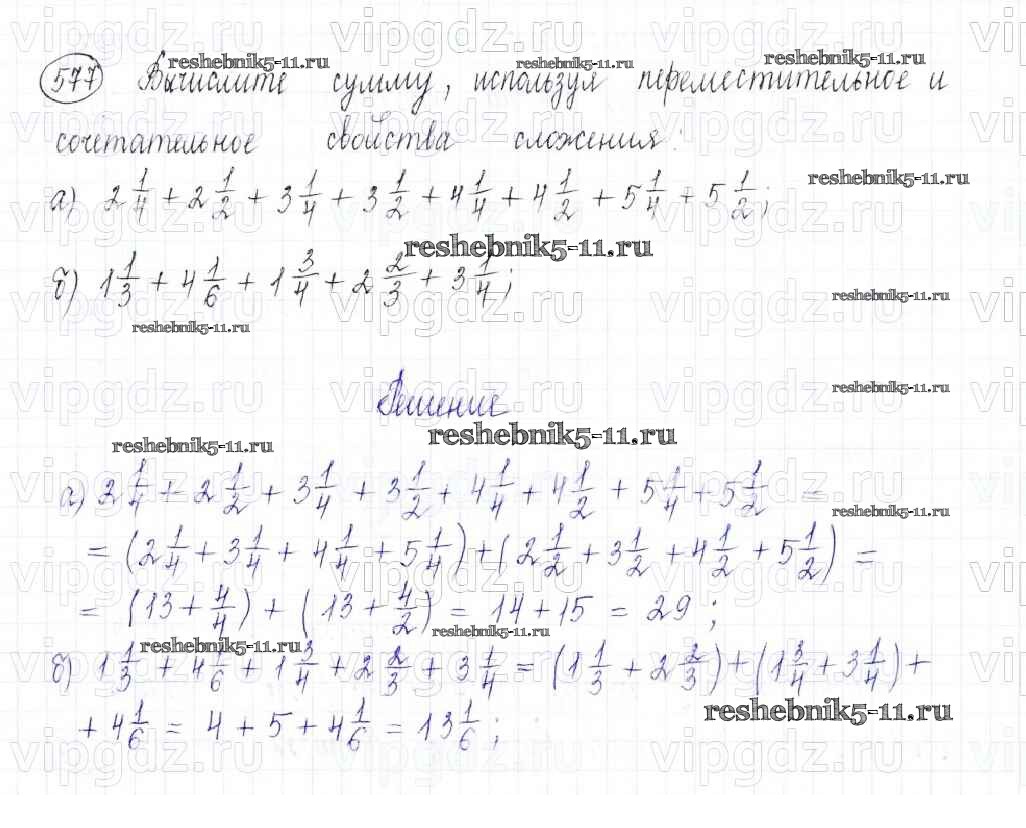 577 Вычислите сумму, используя переместительное и
сочетательное свойства сложения:
а) 2 1/4 + 2 1/2 + 3 1/4 + 3 1/2 + 4 1/4 + 4 1/2 + 5 1/4 + 5 1/2;
б) 1 1/3 + 4 1/6 + 1 3/4 + 2 2/3 + 3 1/4;
Решение
а) 2 1/4 + 2 1/2 + 3 1/4 + 3 1/2 + 4 1/4 + 4 1/2 + 5 1/4 + 5 1/2 =
= (2 1/4 + 3 1/4 + 4 1/4 + 5 1/4) + (2 1/2 + 3 1/2 + 4 1/2 + 5 1/2) =
= (13 + 4/4) + (13 + 4/2) = 14 + 15 = 29;
б) 1 1/3 + 4 1/6 + 1 3/4 + 2 2/3 + 3 1/4 = (1 1/3 + 2 2/3) + (1 3/4 + 3 1/4) +
+ 4 1/6 = 4 + 5 + 4 1/6 = 13 1/6;